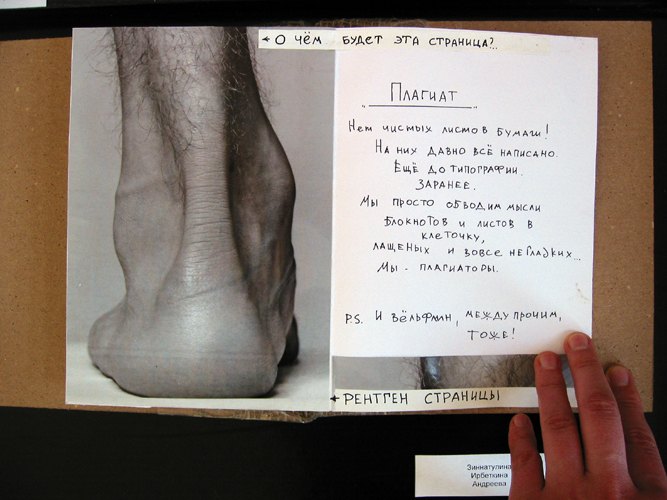 ← О ЧЁМ БУДЕТ ЭТА СТРАНИЦА?..
"ПЛАГИАТ"
Нет чистых листов бумаги!
На них давно всё написано.
Ещё до типографии.
Заранее.
Мы просто обводим мысли
блокнотов и листов в
клеточку,
лащеных и вовсе негладких...
Мы - плагиаторы.
P.S. И Вёльфлин, между прочим,
тоже!
← РЕНТГЕН СТРАНИЦЫ
Зиннатулина
Ирбеткина
Андреева